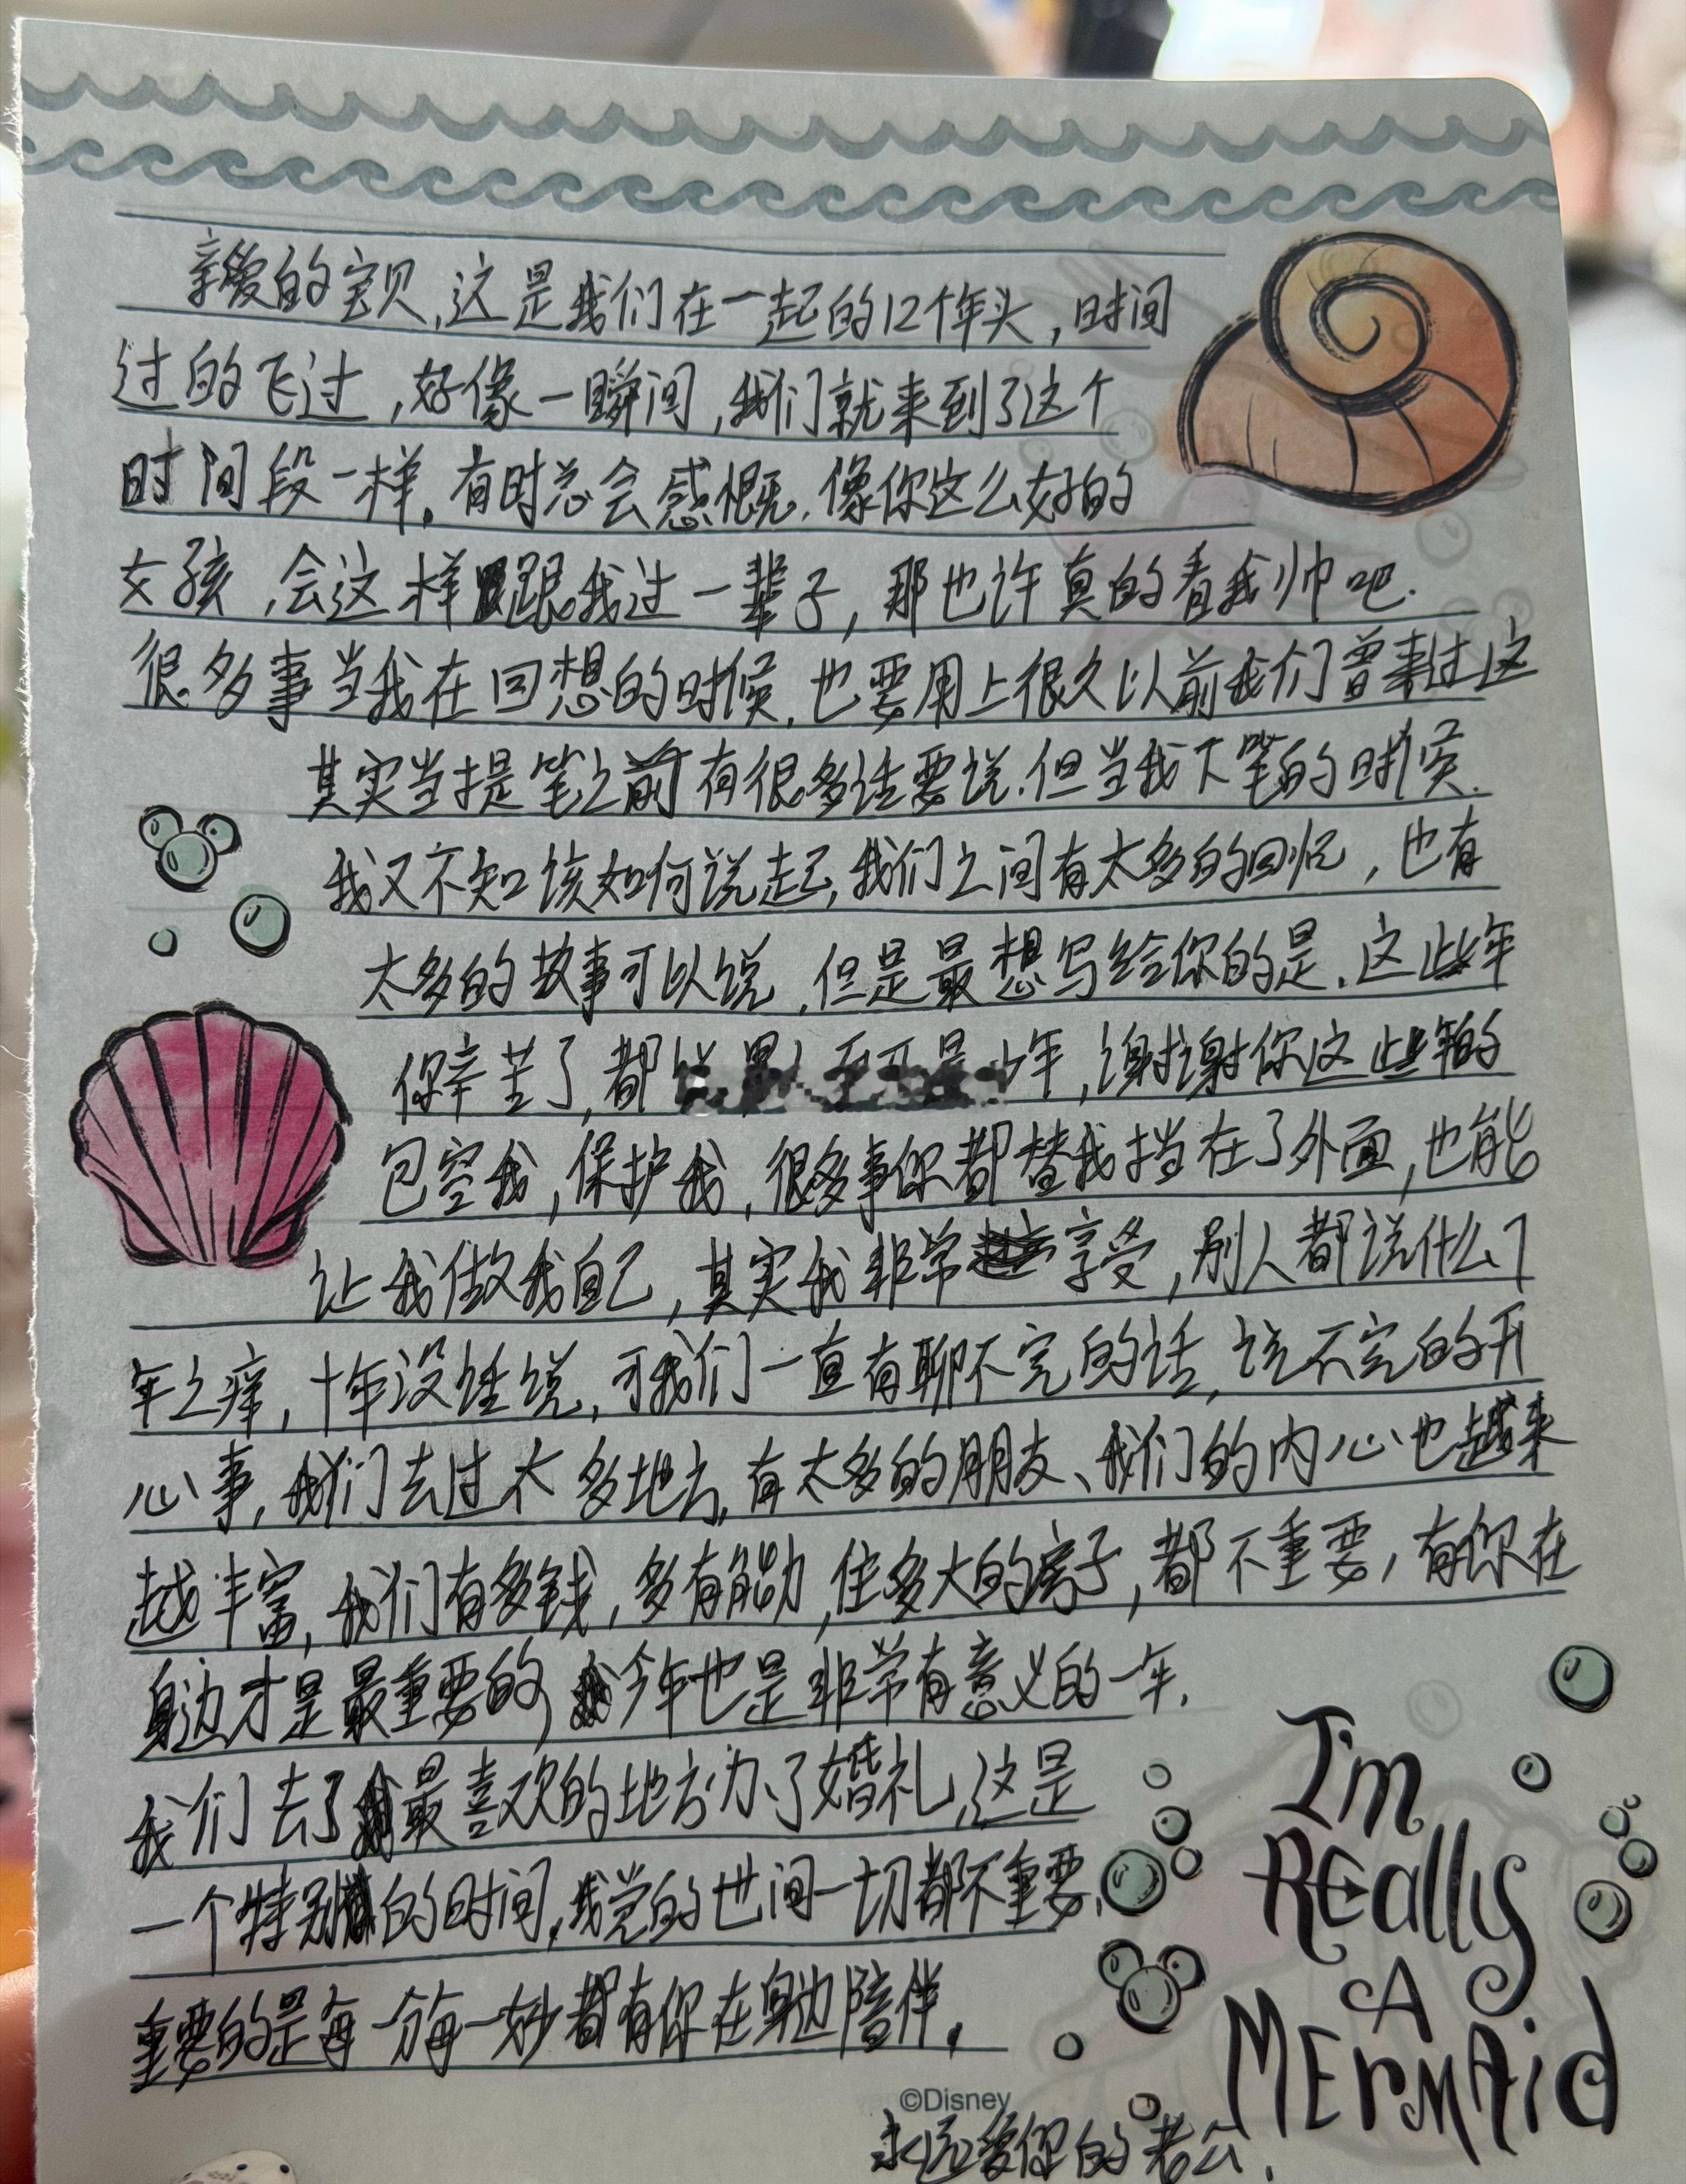 亲爱的宝贝,这是我们在一起的12个年头,时间
过的飞过,好像一瞬间,我们就来到了这个
时间段一样。有时总会感慨.像你这么好的
女孩,会这样跟我过一辈子,那也许真的看我帅吧.
很多事当我在回想的时候,也要用上很久以前我们曾来过这
其实当提笔之前有很多话要说.但当我下笔的时候.
我又不知该如何说起,我们之间有太多的回忆,也有
太多的故事可以说,但是最想写给你的是.这些年
你辛苦了,都说 年,谢谢你这些年的
包容我,保护我,很多事你都替我挡在了外面,也能
让我做我自己,其实我非常享受,别人都说什么7
年之痒,十年没话说,可我们一直有聊不完的话,说不完的开
心事,我们去过太多地方,有太多的朋友、我们的内心也越来
越丰富,我们有多钱,多有能力,住多大的房子,都不重要,有你在
身边才是最重要的,今年也是非常有意义的一年,
我们去了最喜欢的地方办了婚礼,这是
一个特别的时间,我觉的世间一切都不重要,
重要的是每一分每一秒都有你在身边陪伴。
永远爱你的老公!
I'm
REally
A
MErmAid
©Disney